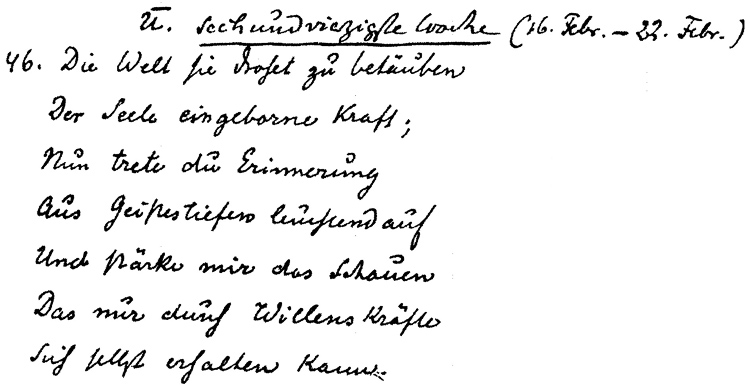 U. sechundvierzigste Woche (16. Febr. – 22. Febr.)
46. Die Welt sie drohet zu betäuben
Der Seele eingeborne Kraft;
Nun trete du Erinnerung
Aus Geistestiefen leuchtend auf
Und stärke mir das Schauen
Das nur durch Willenskräfte
Sich selbst erhalten kann.